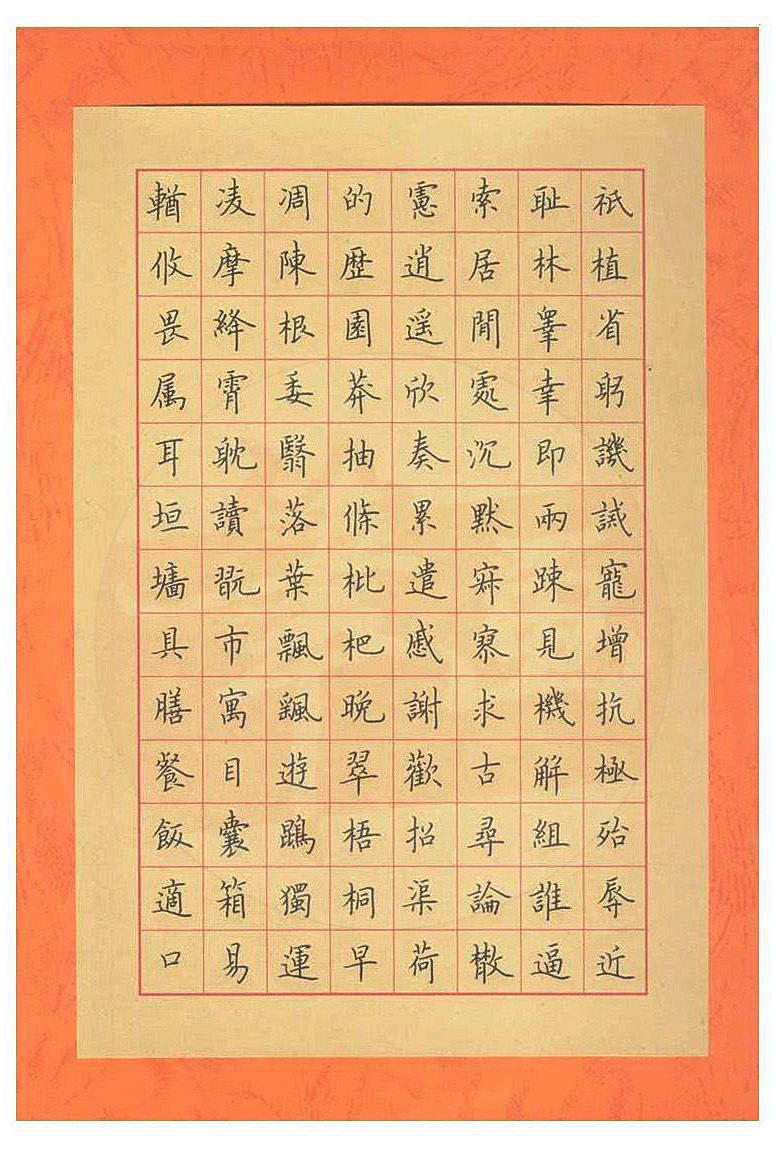 祗植省躬譏誡寵增抗極殆辱近
耻林睾幸即兩踈見機解組誰逼
索居閒處沉默寂寥求古尋論散
慮逍遥欣奏累遣慼謝歡招渠荷
的歴園莽抽條枇杷晚翠梧桐早
凋陳根委翳落葉飄飖遊鵾獨運
凌摩絳霄躭讀翫市寓目囊箱易
輶攸畏属耳垣墻具膳餐飯適口